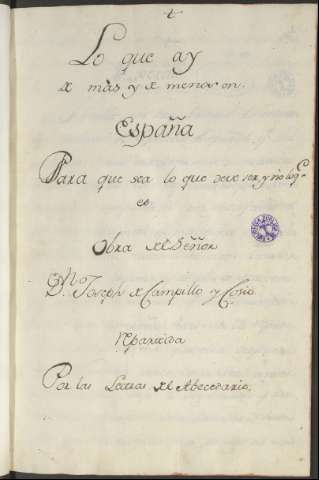 Lo que ay
de mas y de menos en.
España
Para que sea lo que deve ser, y no lo q.e
es
Obra del Señor
D.n Joseph de Campillo y Cosio
repartida
Por las Letras del Abecedario.